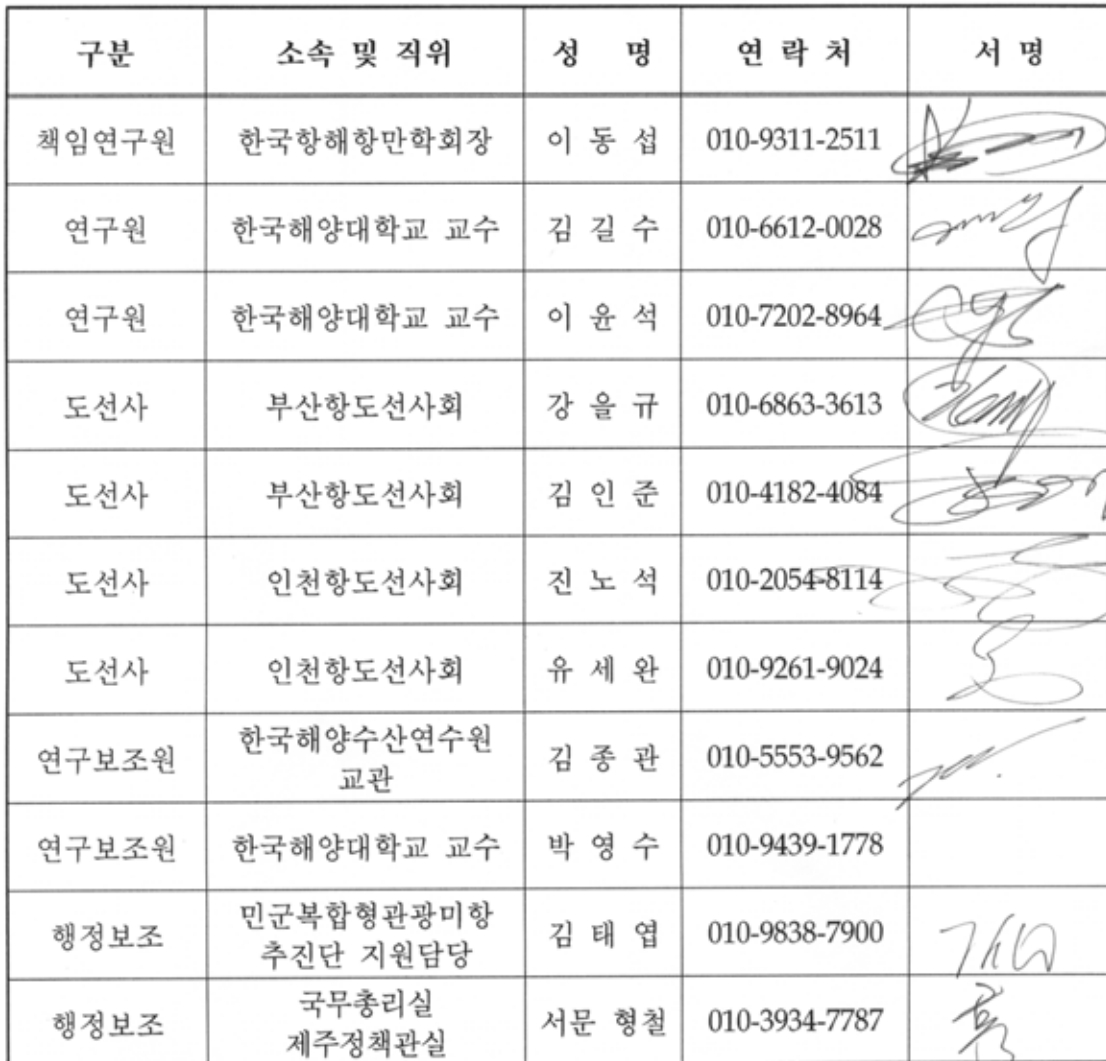 구분 소속 및 직위 성 명 연 락 처 서 명
책임연구원 한국항해항만학회장 이 동 섭 010-9311-2511
연구원 한국해양대학교 교수 김 길 수 010-6612-0028
연구원 한국해양대학교 교수 이 윤 석 010-7202-8964
도선사 부산항도선사회 강 을 규 010-6863-3613
도선사 부산항도선사회 김 인 준 010-4182-4084
도선사 인천항도선사회 진 노 석 010-2054-8114
도선사 인천항도선사회 유 세 완 010-9261-9024
연구보조원 한국해양수산연수원
교관 김 종 관 010-5553-9562
연구보조원 한국해양대학교 교수 박 영 수 010-9439-1778
행정보조 민군복합형관광미항
추진단 지원담당 김 태 엽 010-9838-7900
행정보조 국무총리실
제주정책관실 서문 형철 010-3934-7787